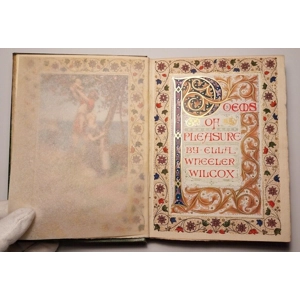 POEMS
OF
PLEASURE
BY ELLA
WHEELER
WILCOX